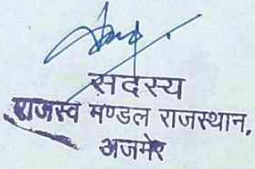 सदस्य
राजस्व मण्डल राजस्थान,
अजमेर